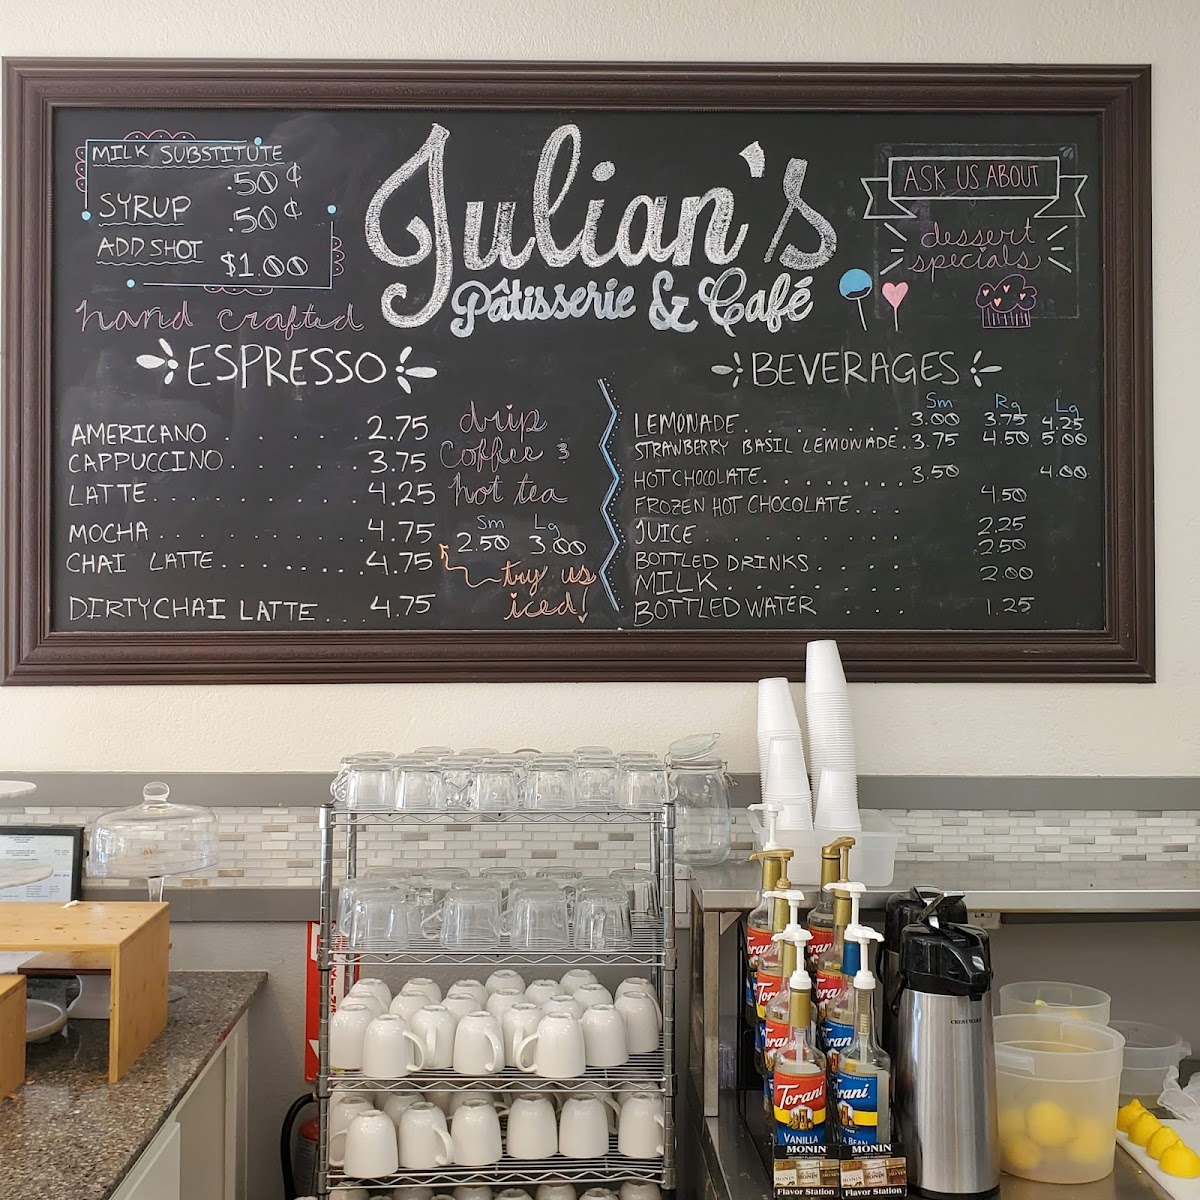 MILK SUBSTITUTE
.50¢
SYRUP .50¢
ADD SHOT $1.00
Julian's
Pâtisserie & Café
ASK US ABOUT
dessert
specials
hand crafted
ESPRESSO
AMERICANO . . . . . . 2.75
CAPPUCCINO . . . . . . . 3.75
LATTE . . . . . . . . . . 4.25
MOCHA . . . . . . . . . 4.75
CHAI LATTE . . . . . . . . 4.75
DIRTY CHAI LATTE . . . 4.75
drip
coffee &
hot tea
Sm Lg
2.50 3.00
try us
iced!
BEVERAGES
Sm Rg Lg
LEMONADE . . . . . . . . 3.00 3.75 4.25
STRAWBERRY BASIL LEMONADE . 3.75 4.50 5.00
HOT CHOCOLATE . . . . . . . . 3.50 4.00
FROZEN HOT CHOCOLATE . . . . 4.50
JUICE . . . . . . . . . 2.25
BOTTLED DRINKS . . . . 2.50
MILK . . . . . . . . 2.00
BOTTLED WATER . . . . 1.25
Torani
VANILLA
MONIN
MONIN
Flavor Station
Flavor Station